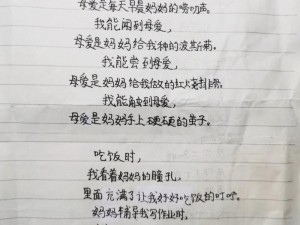 母爱是每天早晨妈妈的唠叨声。
我能闻到母爱,
母爱是妈妈给我种的波斯菊。
我能尝到母爱,
母爱是妈妈给我做的红火
我能触到母爱,
母爱是妈妈手上硬硬的茧子。
吃饭时,
我看着妈妈的瞳孔。
里面充满了让我好好吃饭的叮咛。
妈妈辅导我写作业时,